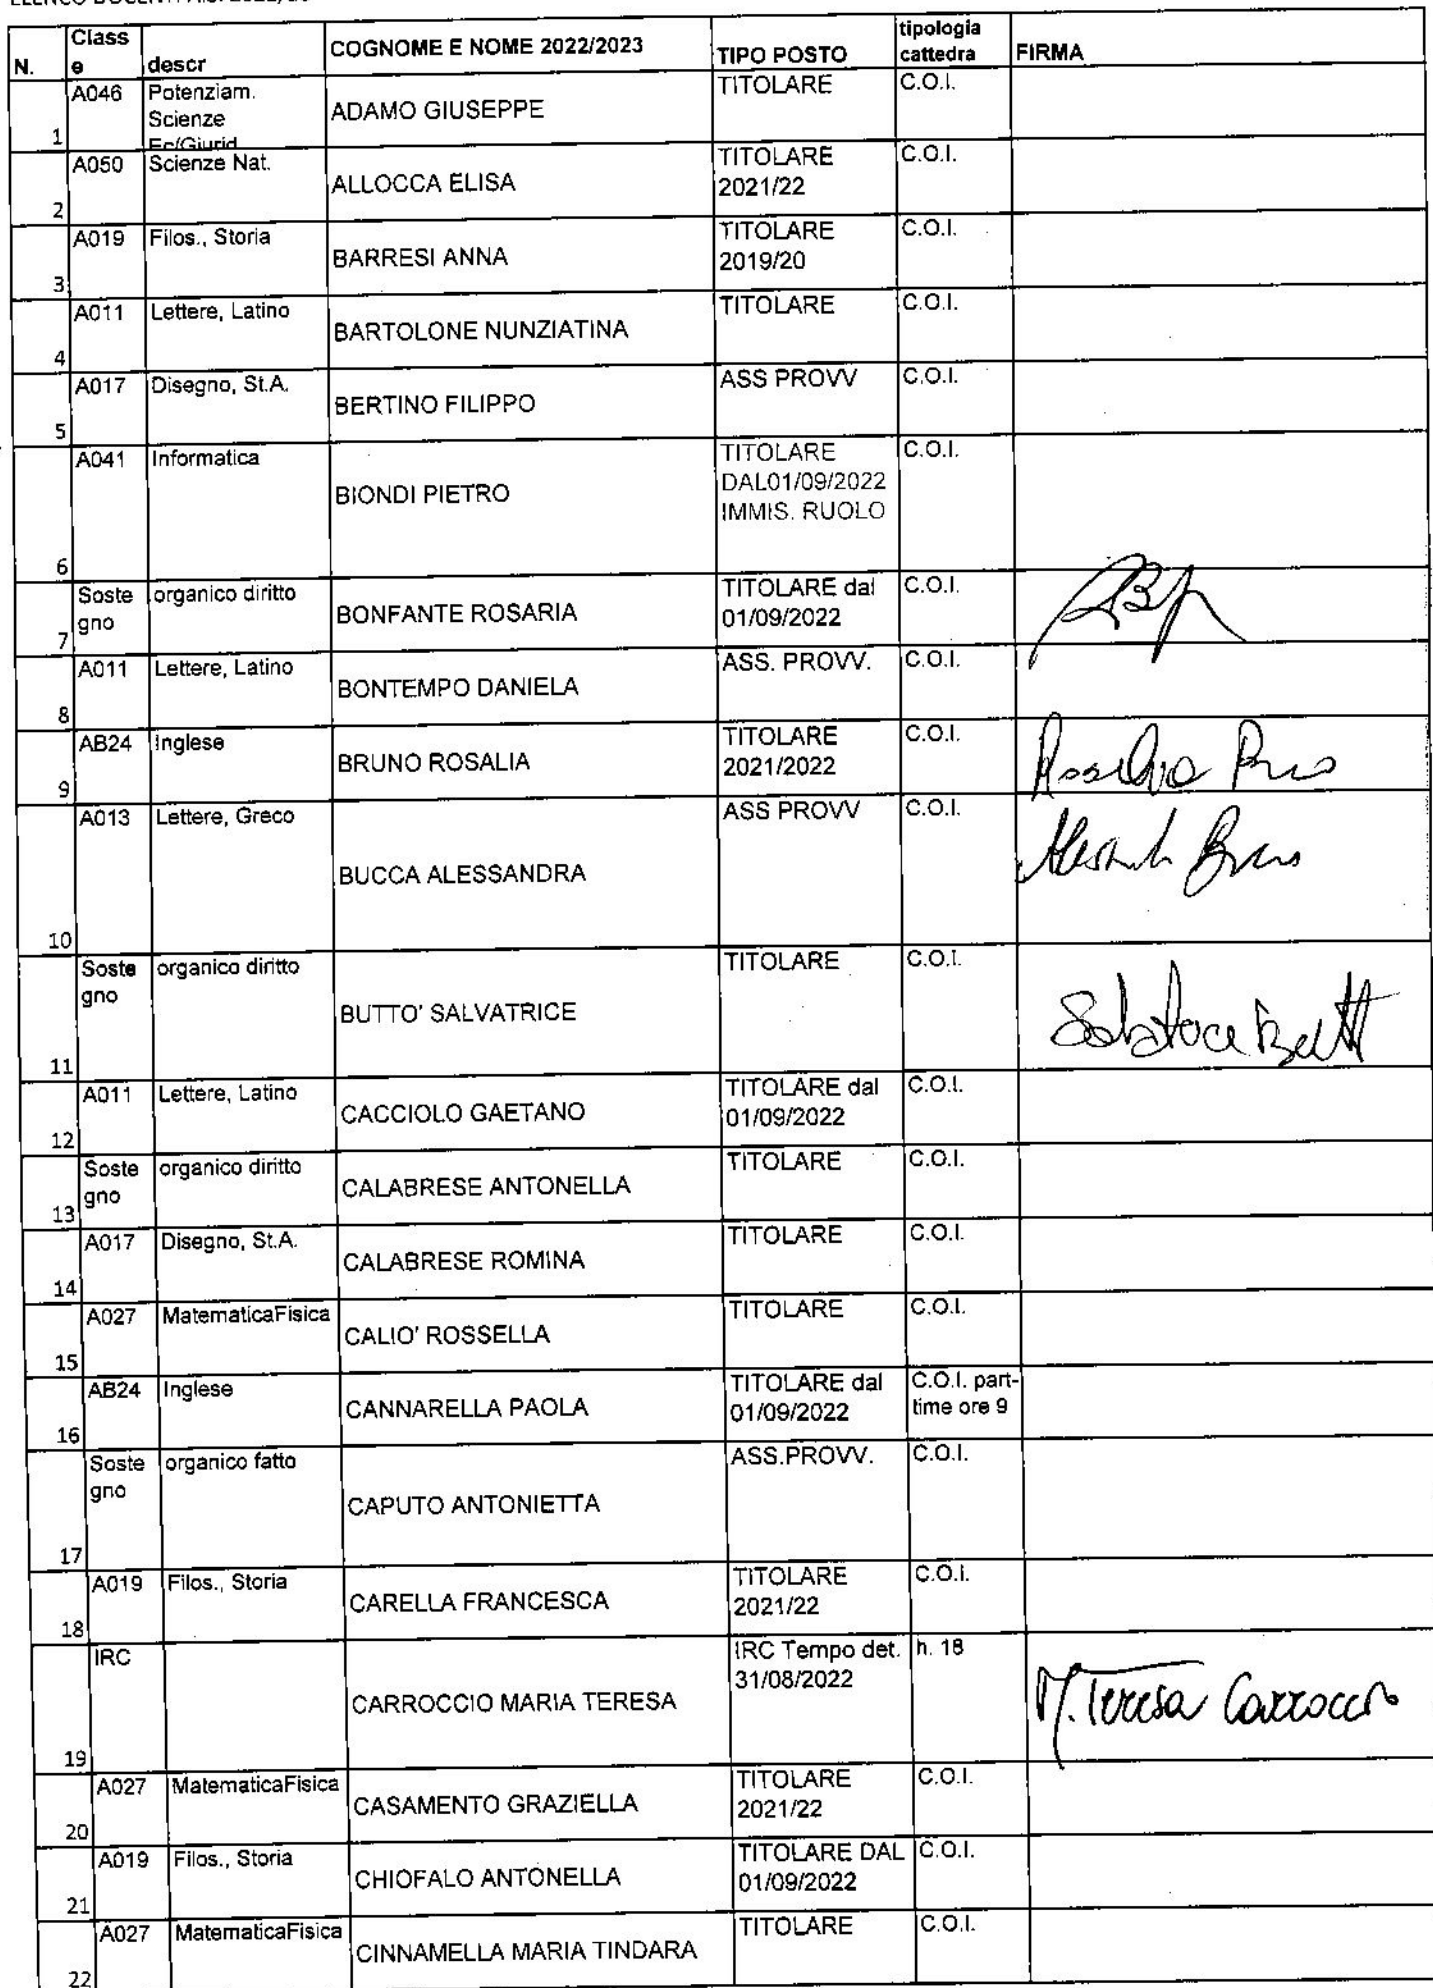 N. Class e descr COGNOME E NOME 2022/2023 TIPO POSTO tipologia cattedra FIRMA
1 A046 Potenziam. Scienze Ec/Giurid ADAMO GIUSEPPE TITOLARE C.O.I.
2 A050 Scienze Nat. ALLOCCA ELISA TITOLARE 2021/22 C.O.I.
3 A019 Filos., Storia BARRESI ANNA TITOLARE 2019/20 C.O.I.
4 A011 Lettere, Latino BARTOLONE NUNZIATINA TITOLARE C.O.I.
5 A017 Disegno, St.A. BERTINO FILIPPO ASS PROVV C.O.I.
6 A041 Informatica BIONDI PIETRO TITOLARE DAL01/09/2022 IMMIS. RUOLO C.O.I.
7 Soste gno organico diritto BONFANTE ROSARIA TITOLARE dal 01/09/2022 C.O.I.
8 A011 Lettere, Latino BONTEMPO DANIELA ASS. PROVV. C.O.I.
9 AB24 Inglese BRUNO ROSALIA TITOLARE 2021/2022 C.O.I.
10 A013 Lettere, Greco BUCCA ALESSANDRA ASS PROVV C.O.I.
11 Soste gno organico diritto BUTTO' SALVATRICE TITOLARE C.O.I.
12 A011 Lettere, Latino CACCIOLO GAETANO TITOLARE dal 01/09/2022 C.O.I.
13 Soste gno organico diritto CALABRESE ANTONELLA TITOLARE C.O.I.
14 A017 Disegno, St.A. CALABRESE ROMINA TITOLARE C.O.I.
15 A027 MatematicaFisica CALIO' ROSSELLA TITOLARE C.O.I.
16 AB24 Inglese CANNARELLA PAOLA TITOLARE dal 01/09/2022 C.O.I. part-time ore 9
17 Soste gno organico fatto CAPUTO ANTONIETTA ASS.PROVV. C.O.I.
18 A019 Filos., Storia CARELLA FRANCESCA TITOLARE 2021/22 C.O.I.
19 IRC CARROCCIO MARIA TERESA IRC Tempo det. 31/08/2022 h. 18 M. Teresa Carroccio
20 A027 MatematicaFisica CASAMENTO GRAZIELLA TITOLARE 2021/22 C.O.I.
21 A019 Filos., Storia CHIOFALO ANTONELLA TITOLARE DAL 01/09/2022 C.O.I.
22 A027 MatematicaFisica CINNAMELLA MARIA TINDARA TITOLARE C.O.I.